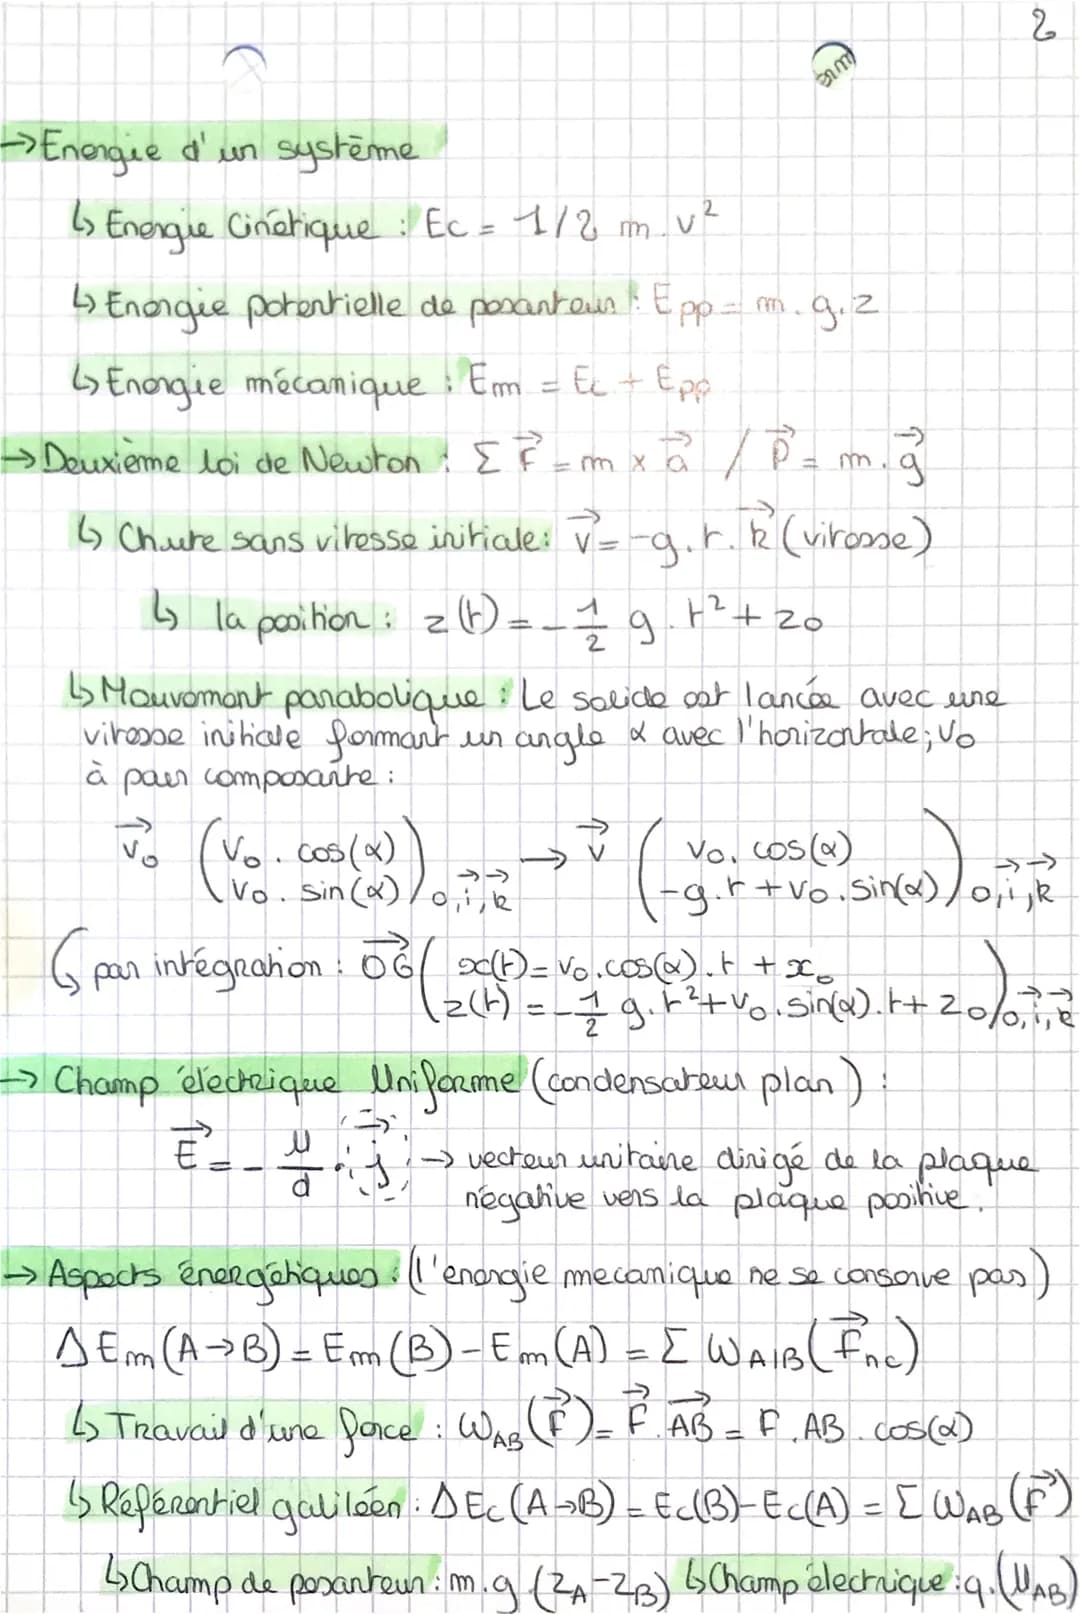 2
→ Energie d'un système
↳ Energie Cinétique : Ec = 1/2 m. v²
↳ Energie potentielle de pesanteur : Epp = m. g. z
↳ Energie mécanique : Em = Ec + Epp
→ Deuxième loi de Newton : Σ F⃗ = m x a⃗ / P⃗ = m. g⃗
↳ Chute sans vitesse initiale : v⃗ = -g. t. k⃗ (vitesse)
↳ la position : z(t) = - 1/2 g. t² + z0
↳ Mouvement parabolique : Le solide est lancée avec une
vitesse initiale formant un angle α avec l'horizontale ; V0
à pour composante :
v⃗0 (V0. cos(α) → v⃗ (V0. cos(α)
V0. sin(α))0, i⃗, k⃗ -g.t + V0. sin(α))0, i⃗, k⃗
↳ par intégration : OG⃗ (x(t) = V0. cos(α). t + x0
z(t) = - 1/2 g. t² + V0. sin(α). t + z0)0, i⃗, k⃗
→ Champ électrique Uniforme (condensateur plan) :
E⃗ = - U/d . j⃗ → vecteur unitaire dirigé de la plaque
négative vers la plaque positive.
→ Aspects énergétiques : (l'énergie mecanique ne se conserve pas)
ΔEm (A→B) = Em (B) - Em (A) = Σ WAB (F⃗nc)
↳ Travail d'une force : WAB (F⃗) = F⃗. AB⃗ = F. AB. cos(α)
↳ Référentiel galiléen : ΔEc (A→B) = Ec(B) - Ec(A) = Σ WAB (F⃗)
↳ Champ de pesanteur : m. g (zA - zB) ↳ Champ électrique : q. (UAB)